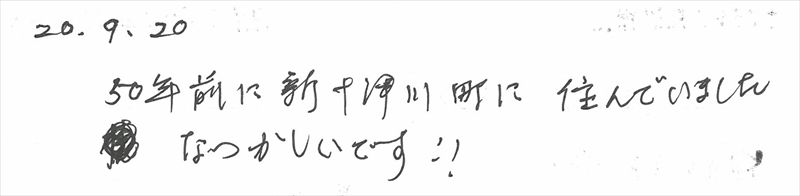 20.9.20
50年前に新十津川町に 住んでいました
なつかしいです!!